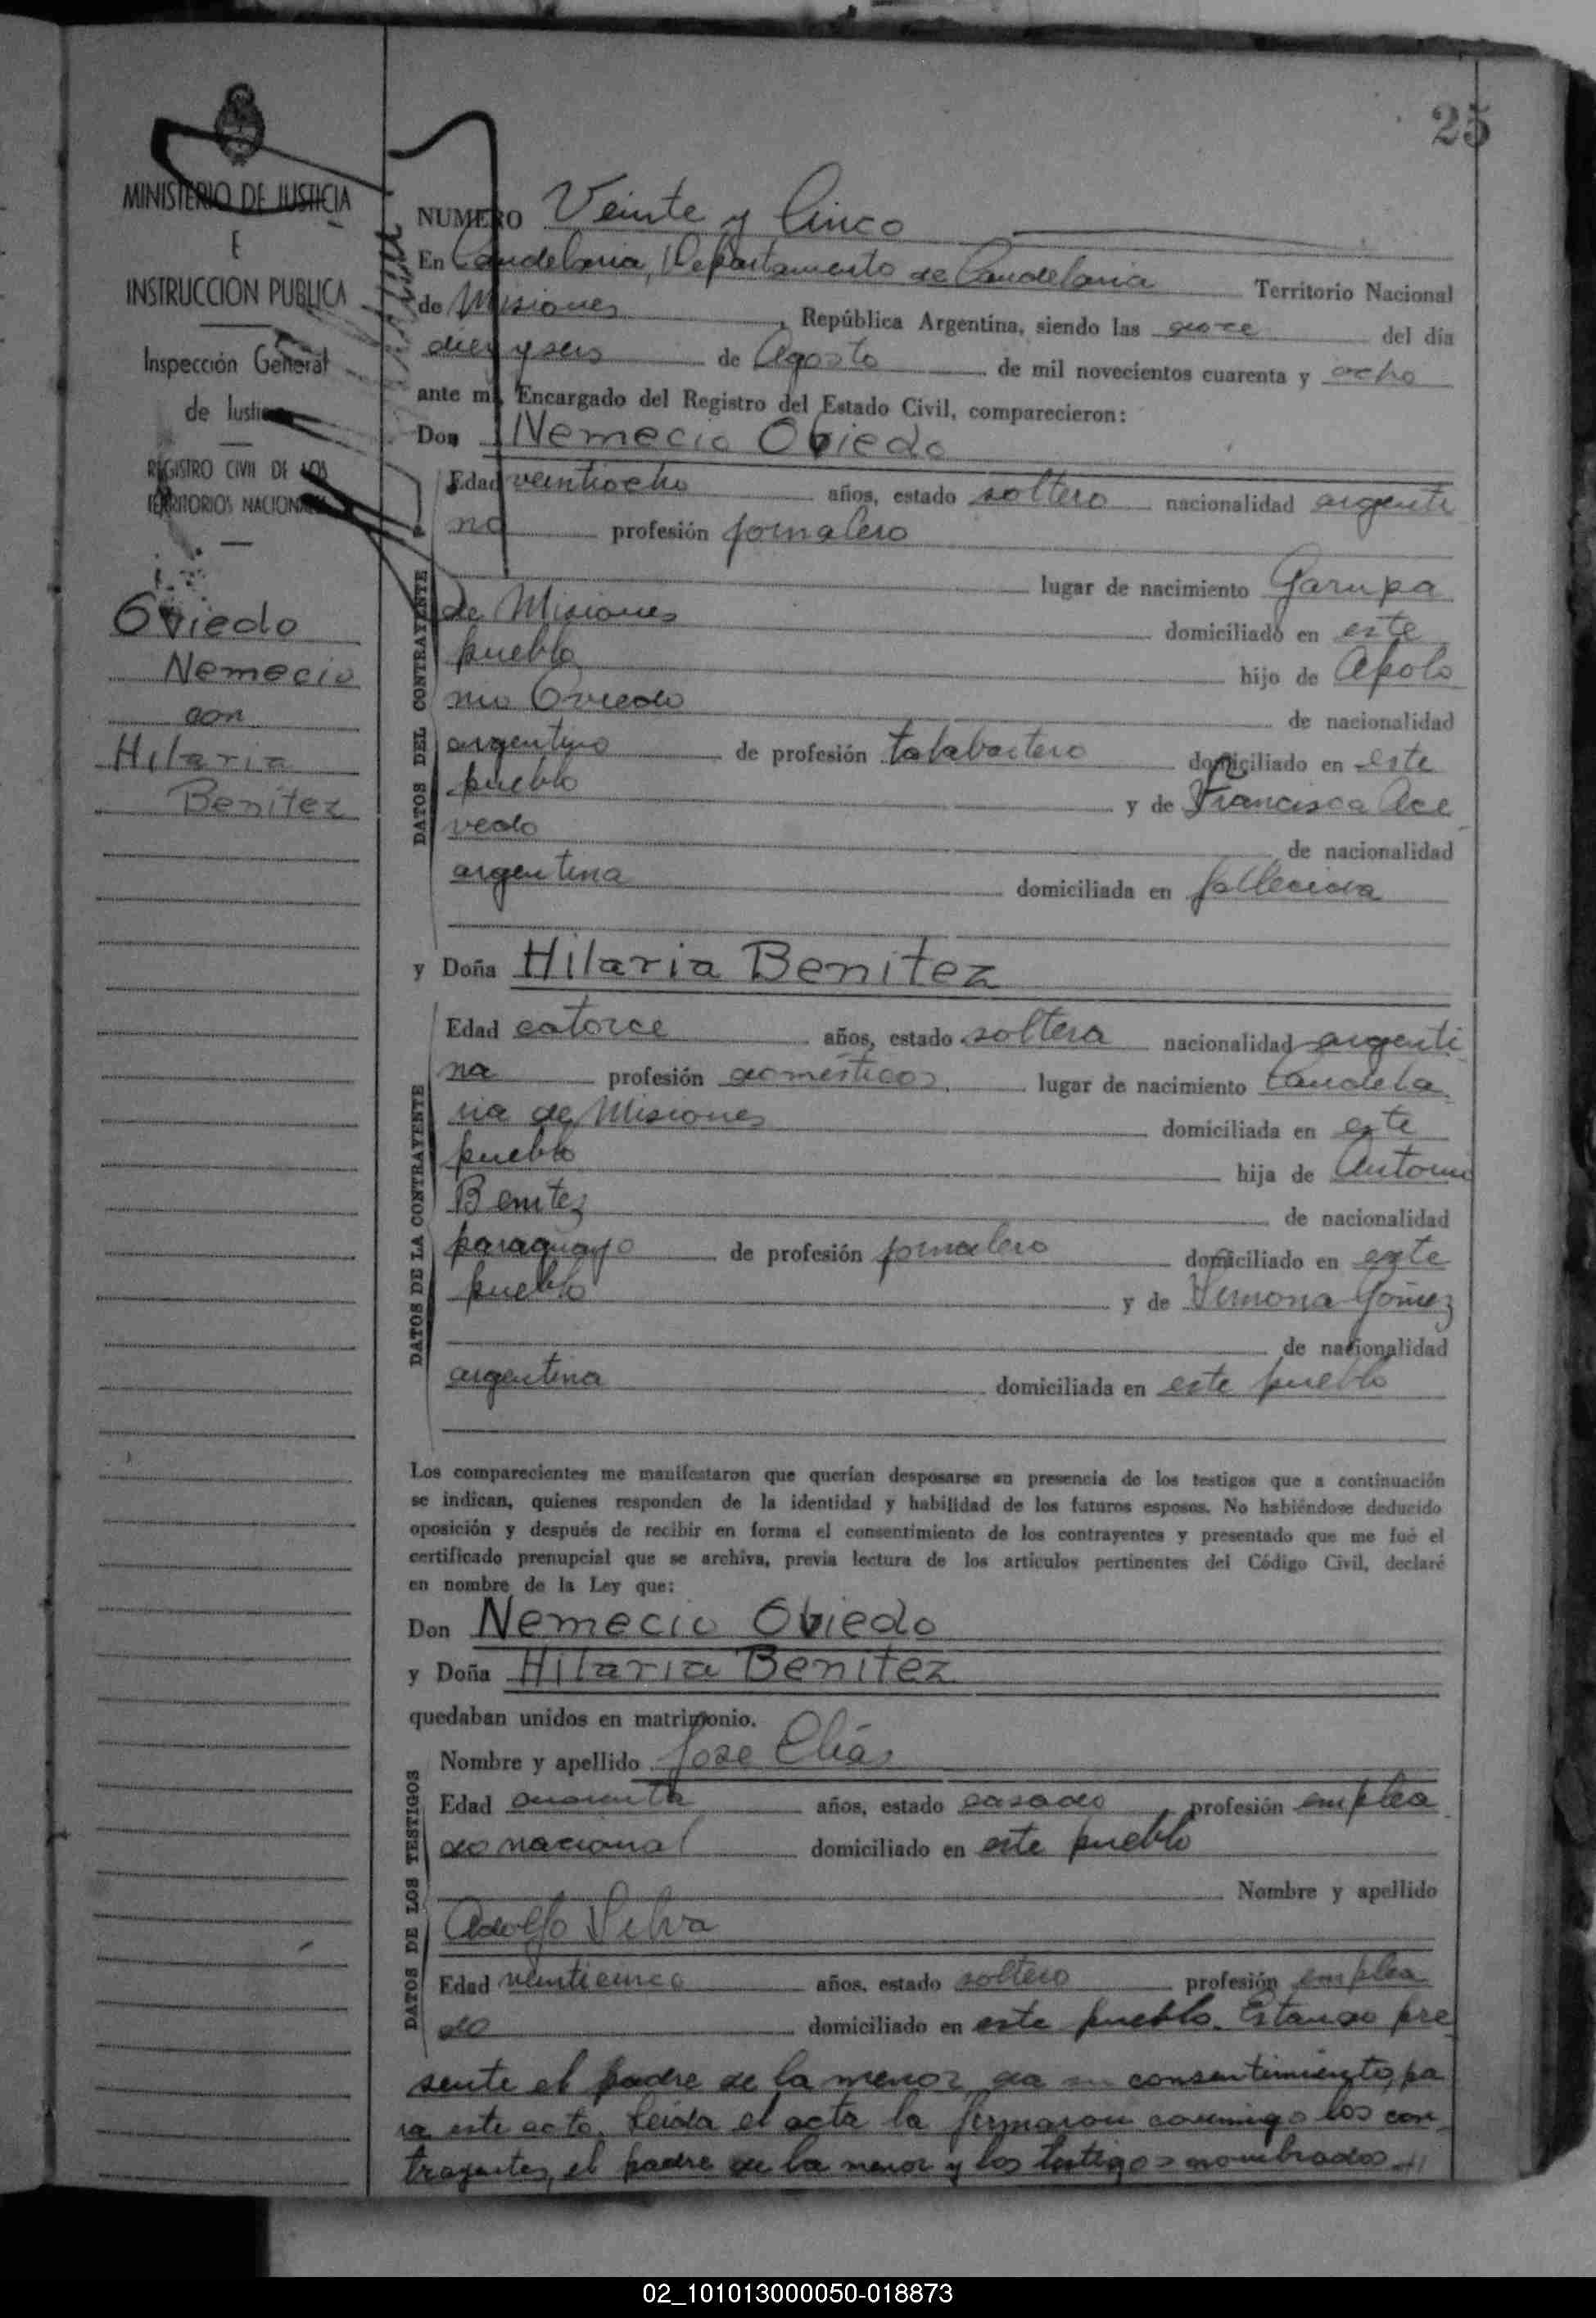 25
MINISTERIO DE JUSTICIA
E
INSTRUCCION PUBLICA
Inspección General
de Justicia
REGISTRO CIVIL DE LOS
TERRITORIOS NACIONALES
Oviedo
Nemecio
con
Hilaria
Benitez
NUMERO Veinte y Cinco
En Candelaria, Departamento de Candelaria Territorio Nacional
de Misiones, República Argentina, siendo las doce del día
diez y seis de Agosto de mil novecientos cuarenta y ocho
ante mí, Encargado del Registro del Estado Civil, comparecieron:
Don Nemecio Oviedo
DATOS DEL CONTRAYENTE
Edad veintiocho años, estado soltero nacionalidad argenti
no profesión jornalero
lugar de nacimiento Garupa
de Misiones domiciliado en este
pueblo hijo de Apolo
nio Oviedo de nacionalidad
argentino de profesión talabartero domiciliado en este
pueblo y de Francisca Ace
vedo de nacionalidad
argentina domiciliada en fallecida
y Doña Hilaria Benitez
DATOS DE LA CONTRAYENTE
Edad catorce años, estado soltera nacionalidad argenti
na profesión domésticos lugar de nacimiento Candela
ria de Misiones domiciliada en este
pueblo hija de Antonio
Benitez de nacionalidad
paraguayo de profesión jornalero domiciliado en este
pueblo y de Simona Gómez
de nacionalidad
argentina domiciliada en este pueblo
Los comparecientes me manifestaron que querían desposarse en presencia de los testigos que a continuación
se indican, quienes responden de la identidad y habilidad de los futuros esposos. No habiéndose deducido
oposición y después de recibir en forma el consentimiento de los contrayentes y presentado que me fué el
certificado prenupcial que se archiva, previa lectura de los artículos pertinentes del Código Civil, declaré
en nombre de la Ley que:
Don Nemecio Oviedo
y Doña Hilaria Benitez
quedaban unidos en matrimonio.
DATOS DE LOS TESTIGOS
Nombre y apellido Jose Elías
Edad cuarenta años, estado casado profesión emplea
do nacional domiciliado en este pueblo
Nombre y apellido
Adolfo Silva
Edad veinticinco años, estado soltero profesión emplea
do domiciliado en este pueblo. Estando pre
sente el padre de la menor da su consentimiento pa
ra este acto. Leida el acta la firmaron conmigo los con
trayentes, el padre de la menor y los testigos nombrados
02_101013000050-018873